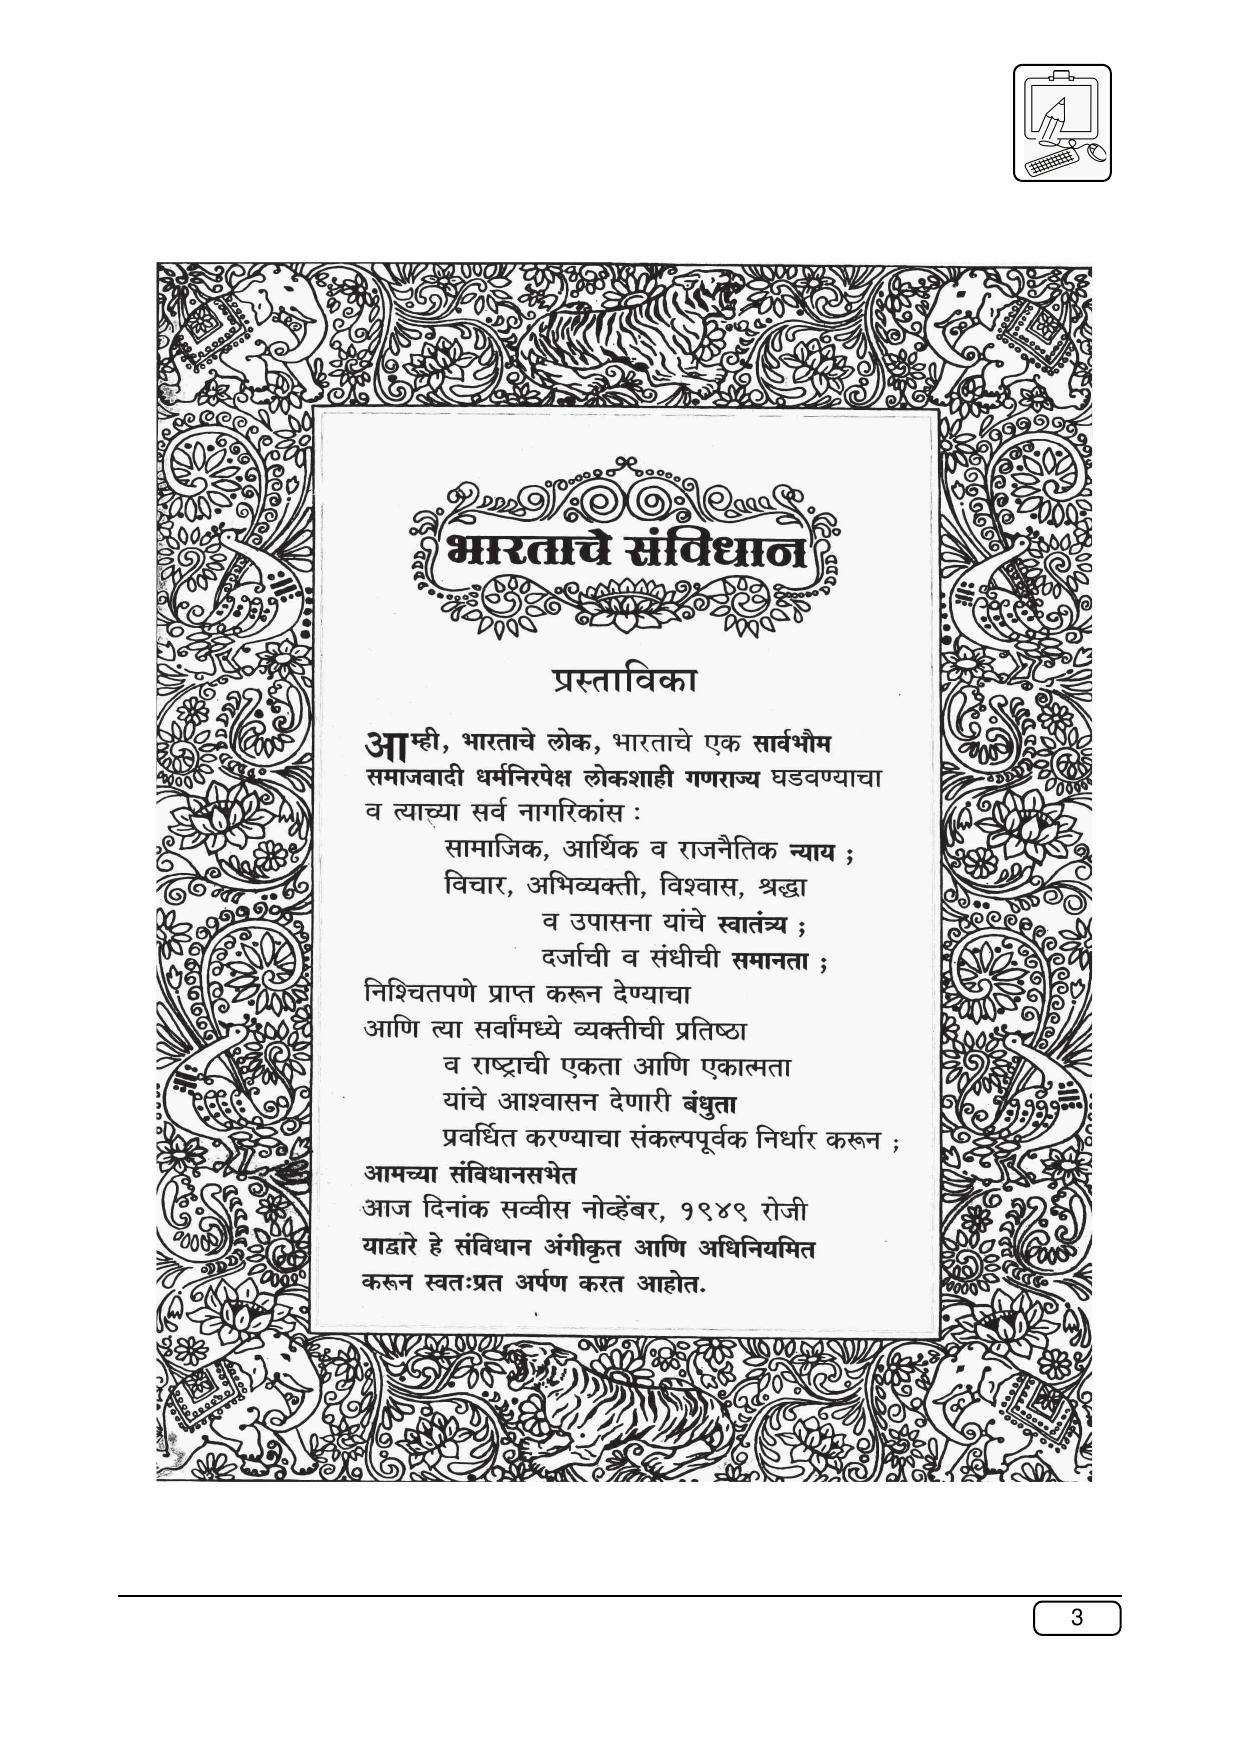 भारताचे संविधान
प्रस्ताविका
आम्ही, भारताचे लोक, भारताचे एक सार्वभौम
समाजवादी धर्मनिरपेक्ष लोकशाही गणराज्य घडवण्याचा
व त्याच्या सर्व नागरिकांस :
सामाजिक, आर्थिक व राजनैतिक न्याय ;
विचार, अभिव्यक्ती, विश्वास, श्रद्धा
व उपासना यांचे स्वातंत्र्य ;
दर्जाची व संधीची समानता ;
निश्चितपणे प्राप्त करून देण्याचा
आणि त्या सर्वांमध्ये व्यक्तीची प्रतिष्ठा
व राष्ट्राची एकता आणि एकात्मता
यांचे आश्वासन देणारी बंधुता
प्रवर्धित करण्याचा संकल्पपूर्वक निर्धार करून ;
आमच्या संविधानसभेत
आज दिनांक सव्वीस नोव्हेंबर, १९४९ रोजी
याद्वारे हे संविधान अंगीकृत आणि अधिनियमित
करून स्वतःप्रत अर्पण करत आहोत.
3